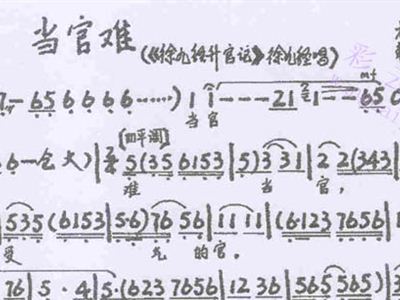 当官难
(《徐九经升官记》徐九经唱)
7.—65 6 6 6 6·····) 1 i - - - 21 2 1 - - 65
mf
当官
6 - 仓 大)| 2 5 (35 6153 | 5) 3 31 | 2 2 (343 |
[四平调]
难 当 官,
535 (6153 | 5·6) 76 56 | 11 11 | (6123 7656 | 1
受 气的官。
76 | 5 · 4 | 5·(623 7656 | 12 36 | 565 565) | 3